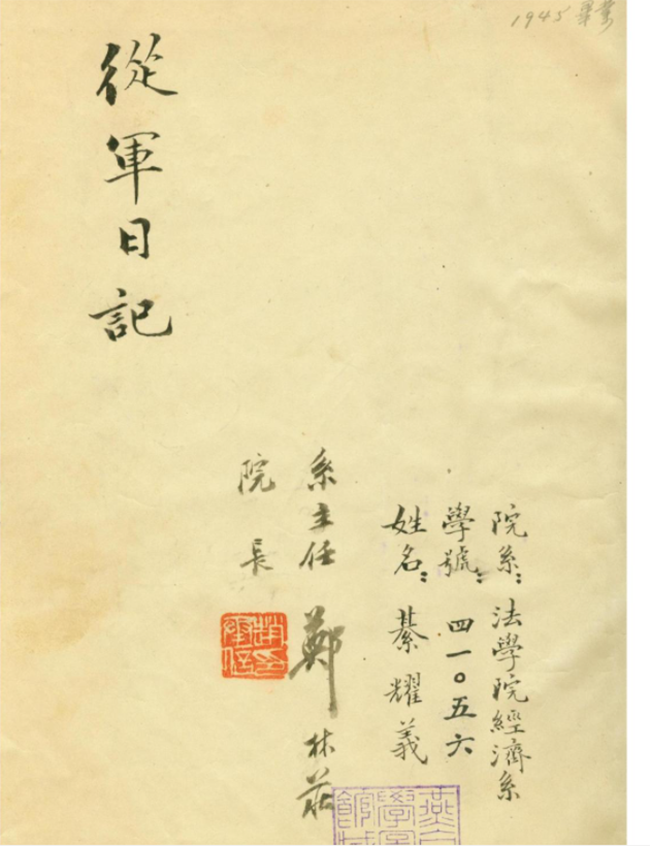 1945 畢業
從軍日記
院系：法學院經濟系
學號：四一〇五六
姓名：綦耀義
系主任 鄭林莊
院長
趙承信印